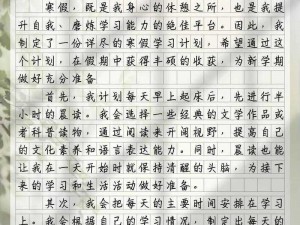 寒假，既是我身心的休憩之所，也是我提
升自我、磨炼学习能力的绝佳平台。因此，我
制定了一份详尽的寒假学习计划，希望通过这
个计划，在假期中获得丰硕的收获，为新学期
做好充分准备
首先，我计划每天早上起床后，先进行半
小时的晨读。我会选择一些经典的文学作品或
者科普读物，通过阅读来开阔视野，提高自己
的文化素养和语言表达能力。同时，晨读也能
让我在一天开始时就保持清醒的头脑，为接下
来的学习和生活活动做好准备。
其次，我会把每天的主要时间安排在学习
上。我会根据自己的学习情况，制定出每天的